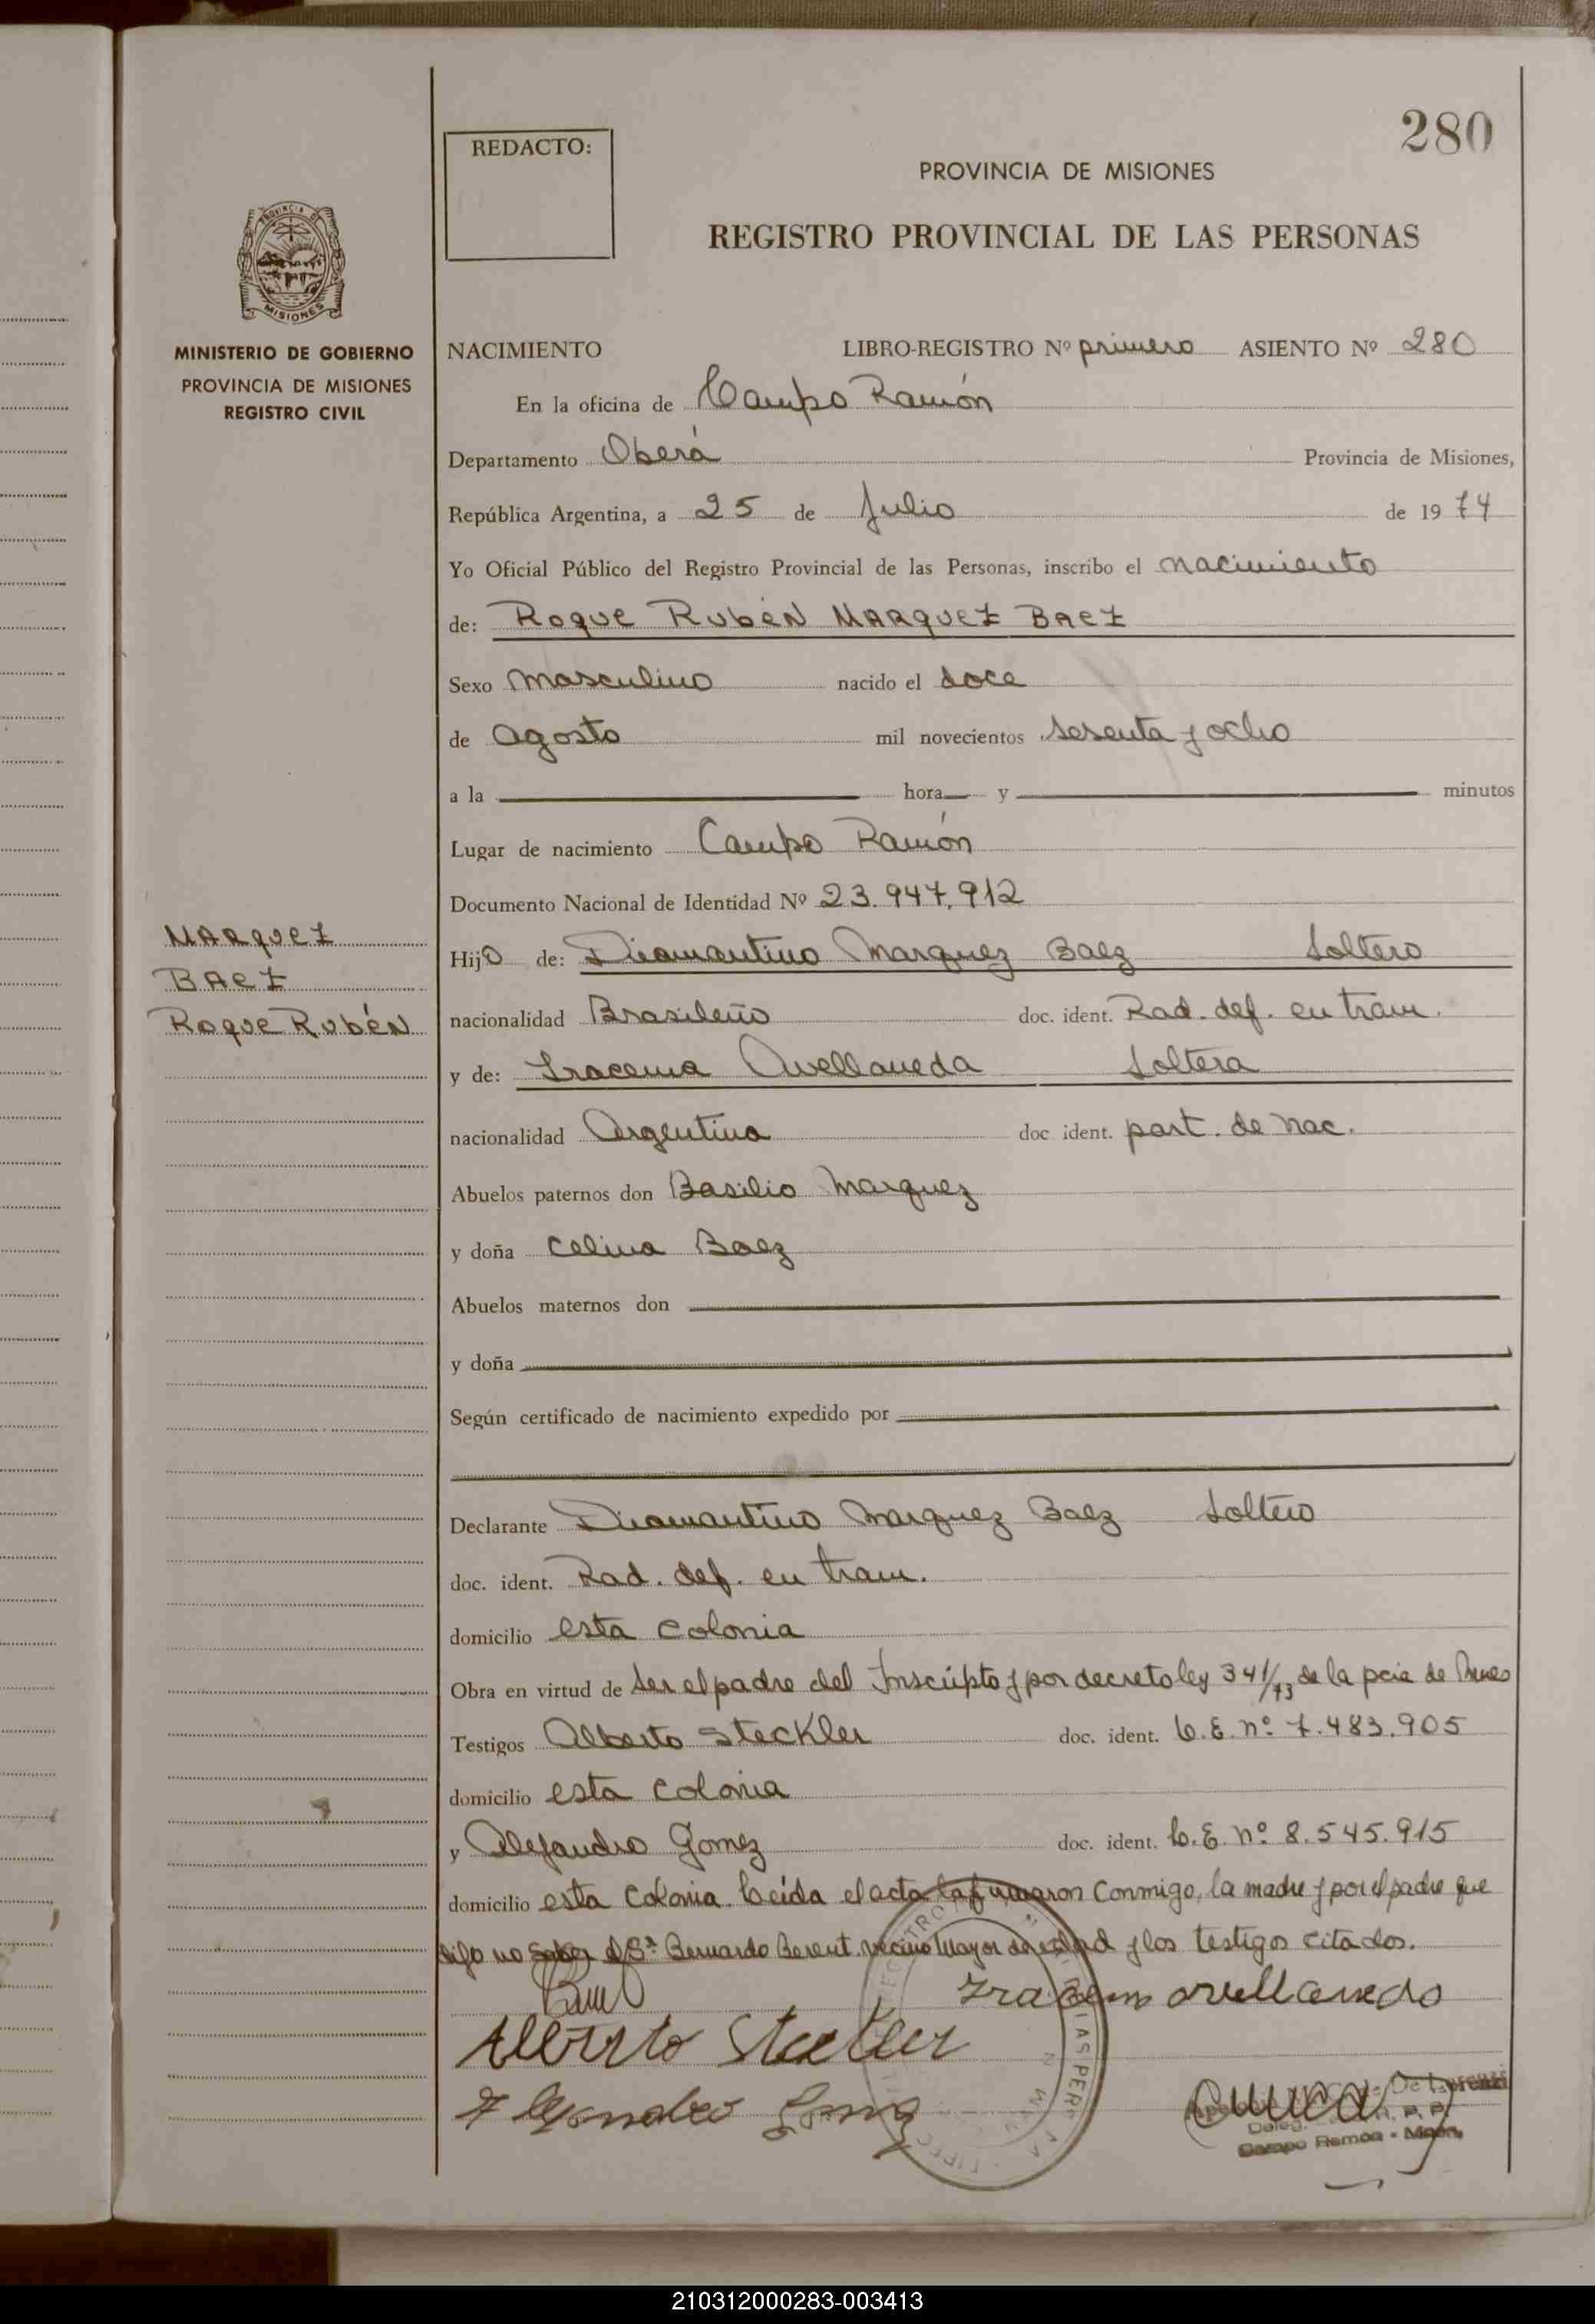 280
REDACTO:
PROVINCIA DE MISIONES
REGISTRO PROVINCIAL DE LAS PERSONAS
PROVINCIA DE
MISIONES
MINISTERIO DE GOBIERNO
PROVINCIA DE MISIONES
REGISTRO CIVIL
NACIMIENTO LIBRO-REGISTRO Nº primero ASIENTO Nº 280
En la oficina de Campo Ramón
Departamento Oberá Provincia de Misiones,
República Argentina, a 25 de Julio de 1974
Yo Oficial Público del Registro Provincial de las Personas, inscribo el nacimiento
de: Roque Rubén MARQUEZ BAEZ
Sexo masculino nacido el doce
de agosto mil novecientos sesenta y ocho
a la hora y minutos
Lugar de nacimiento Campo Ramón
Documento Nacional de Identidad Nº 23.947.912
MARQUEZ
BAEZ
Roque Rubén
Hijo de: Diamantino Marquez Baez Soltero
nacionalidad Brasileño doc. ident. Rad. def. en tram.
y de: Iracema Avellaneda Soltera
nacionalidad Argentina doc ident. part. de nac.
Abuelos paternos don Basilio Marquez
y doña Celina Baez
Abuelos maternos don
y doña
Según certificado de nacimiento expedido por
Declarante Diamantino Marquez Baez Soltero
doc. ident. Rad. def. en tram.
domicilio esta colonia
Obra en virtud de ser el padre del Inscripto y por decreto ley 341/73 de la pcia de
Testigos Alberto Steckler doc. ident. L.E. nº 7.483.905
domicilio esta colonia
y Alejandro Gomez doc. ident. L.E. nº 8.545.915
domicilio esta Colonia. Leída el acta la firmaron conmigo, la madre y por el padre que
dijo no saber el Sr. Bernardo Berent vecino mayor de edad y los testigos citados.
Iracema Avellaneda
Alberto Steckler
Alejandro Gomez
Campo Ramon - Mnes.
210312000283-003413